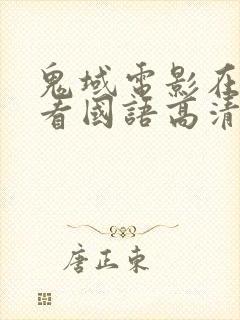 鬼域電影在
看國語高清
唐正東